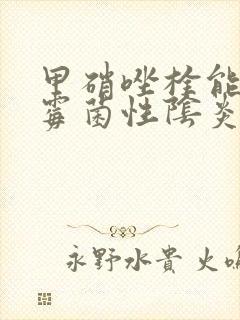 甲硝唑栓能
霉菌性陰炎
永野水貴 火鳴